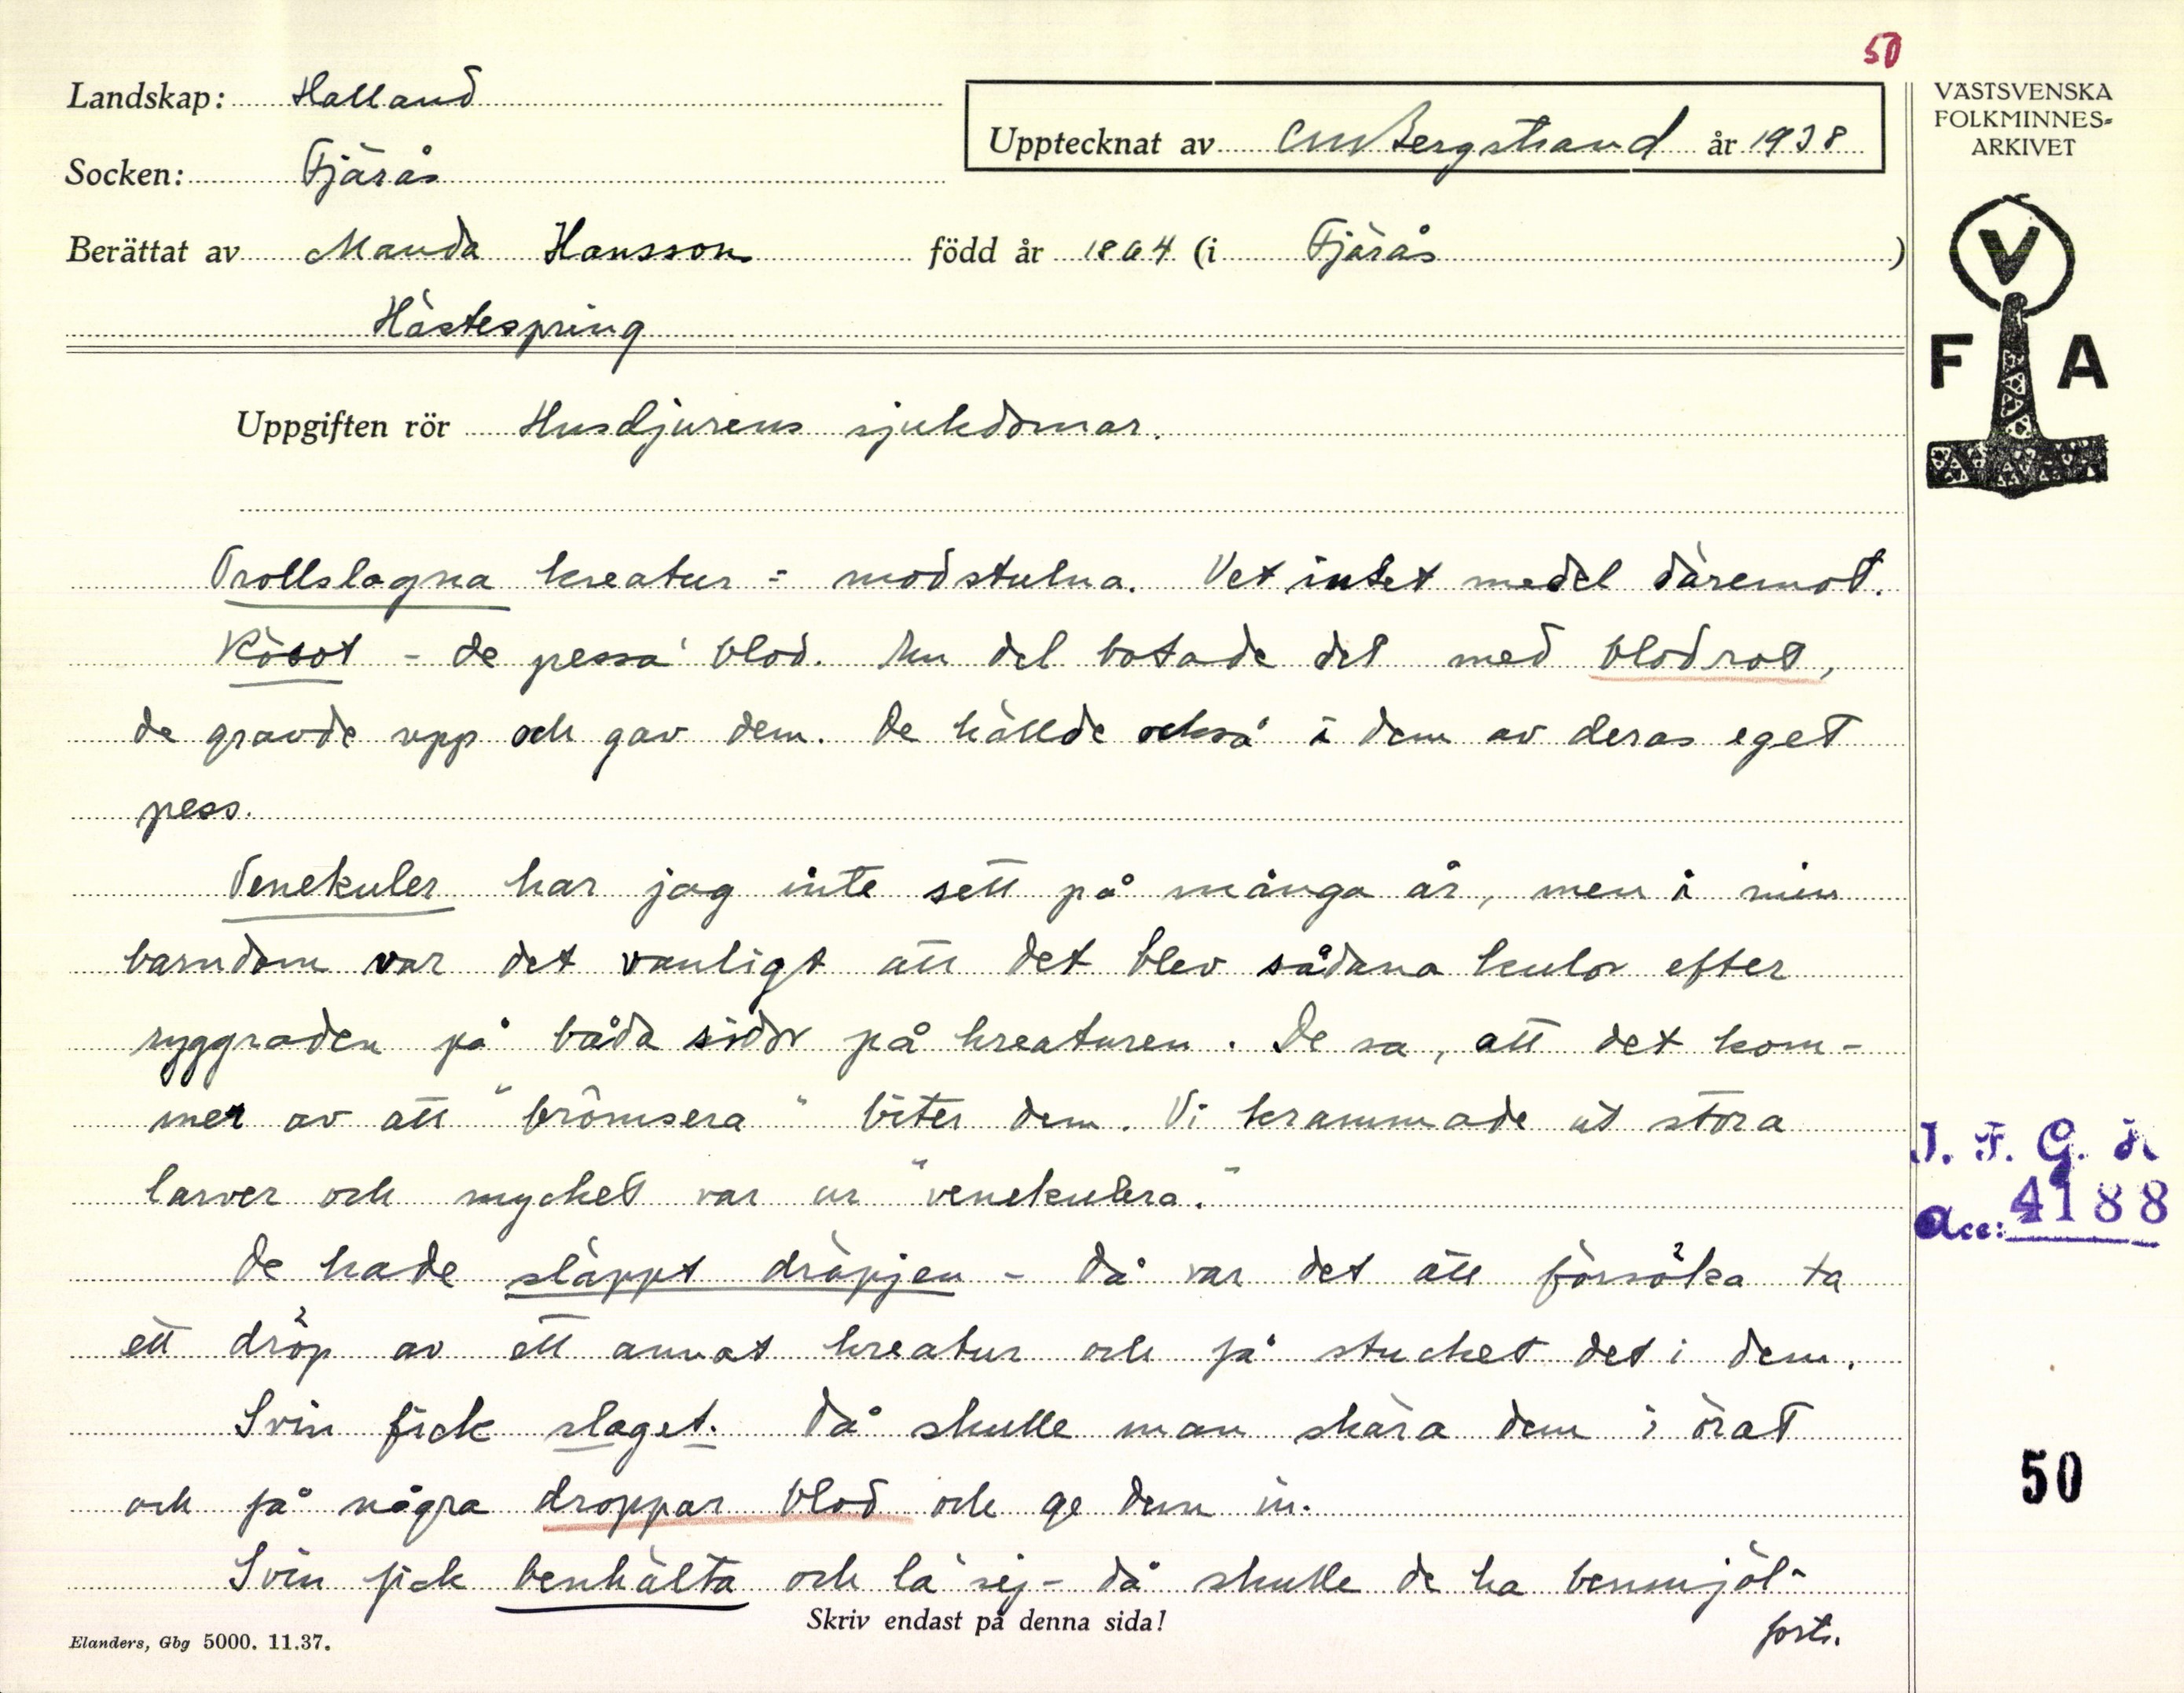 50
Landskap: Halland
Upptecknat av CM Bergstrand år 1938
VÄSTSVENSKA
FOLKMINNES-
ARKIVET
Socken: Fjärås
Berättat av Manda Hansson född år 1864 (i Fjärås)
Hästespring
V
F A
Uppgiften rör Husdjurens sjukdomar.
Trollslagna kreatur = modstulna. Vet intet medel däremot.
Kösot - de pessa' blod. En del botade det med blodrot,
de gravde upp och gav dem. De hällde också i dem av deras eget
pess.
Venekuler har jag inte sett på många år, men i min
barndom var det vanligt att det blev sådana kulor efter
ryggraden på båda sidor på kreaturen. De sa, att det kom-
mer av att "brömsera" biter dem. Vi krammade ut stora
larver och mycket var ur "venekulera."
De hade släppt dröpjen - då var det att försöka ta
ett dröp av ett annat kreatur och få stucket det i dem.
Svin fick slaget. Då skulle man skära dem i örat
och få några droppar blod och ge dem in.
Svin fick benhälta och la' sej - då skulle de ha benmjöl-
fort.
Skriv endast på denna sida!
Elanders, Gbg 5000. 11.37.
I. F. G. H
Acc: 4188
50